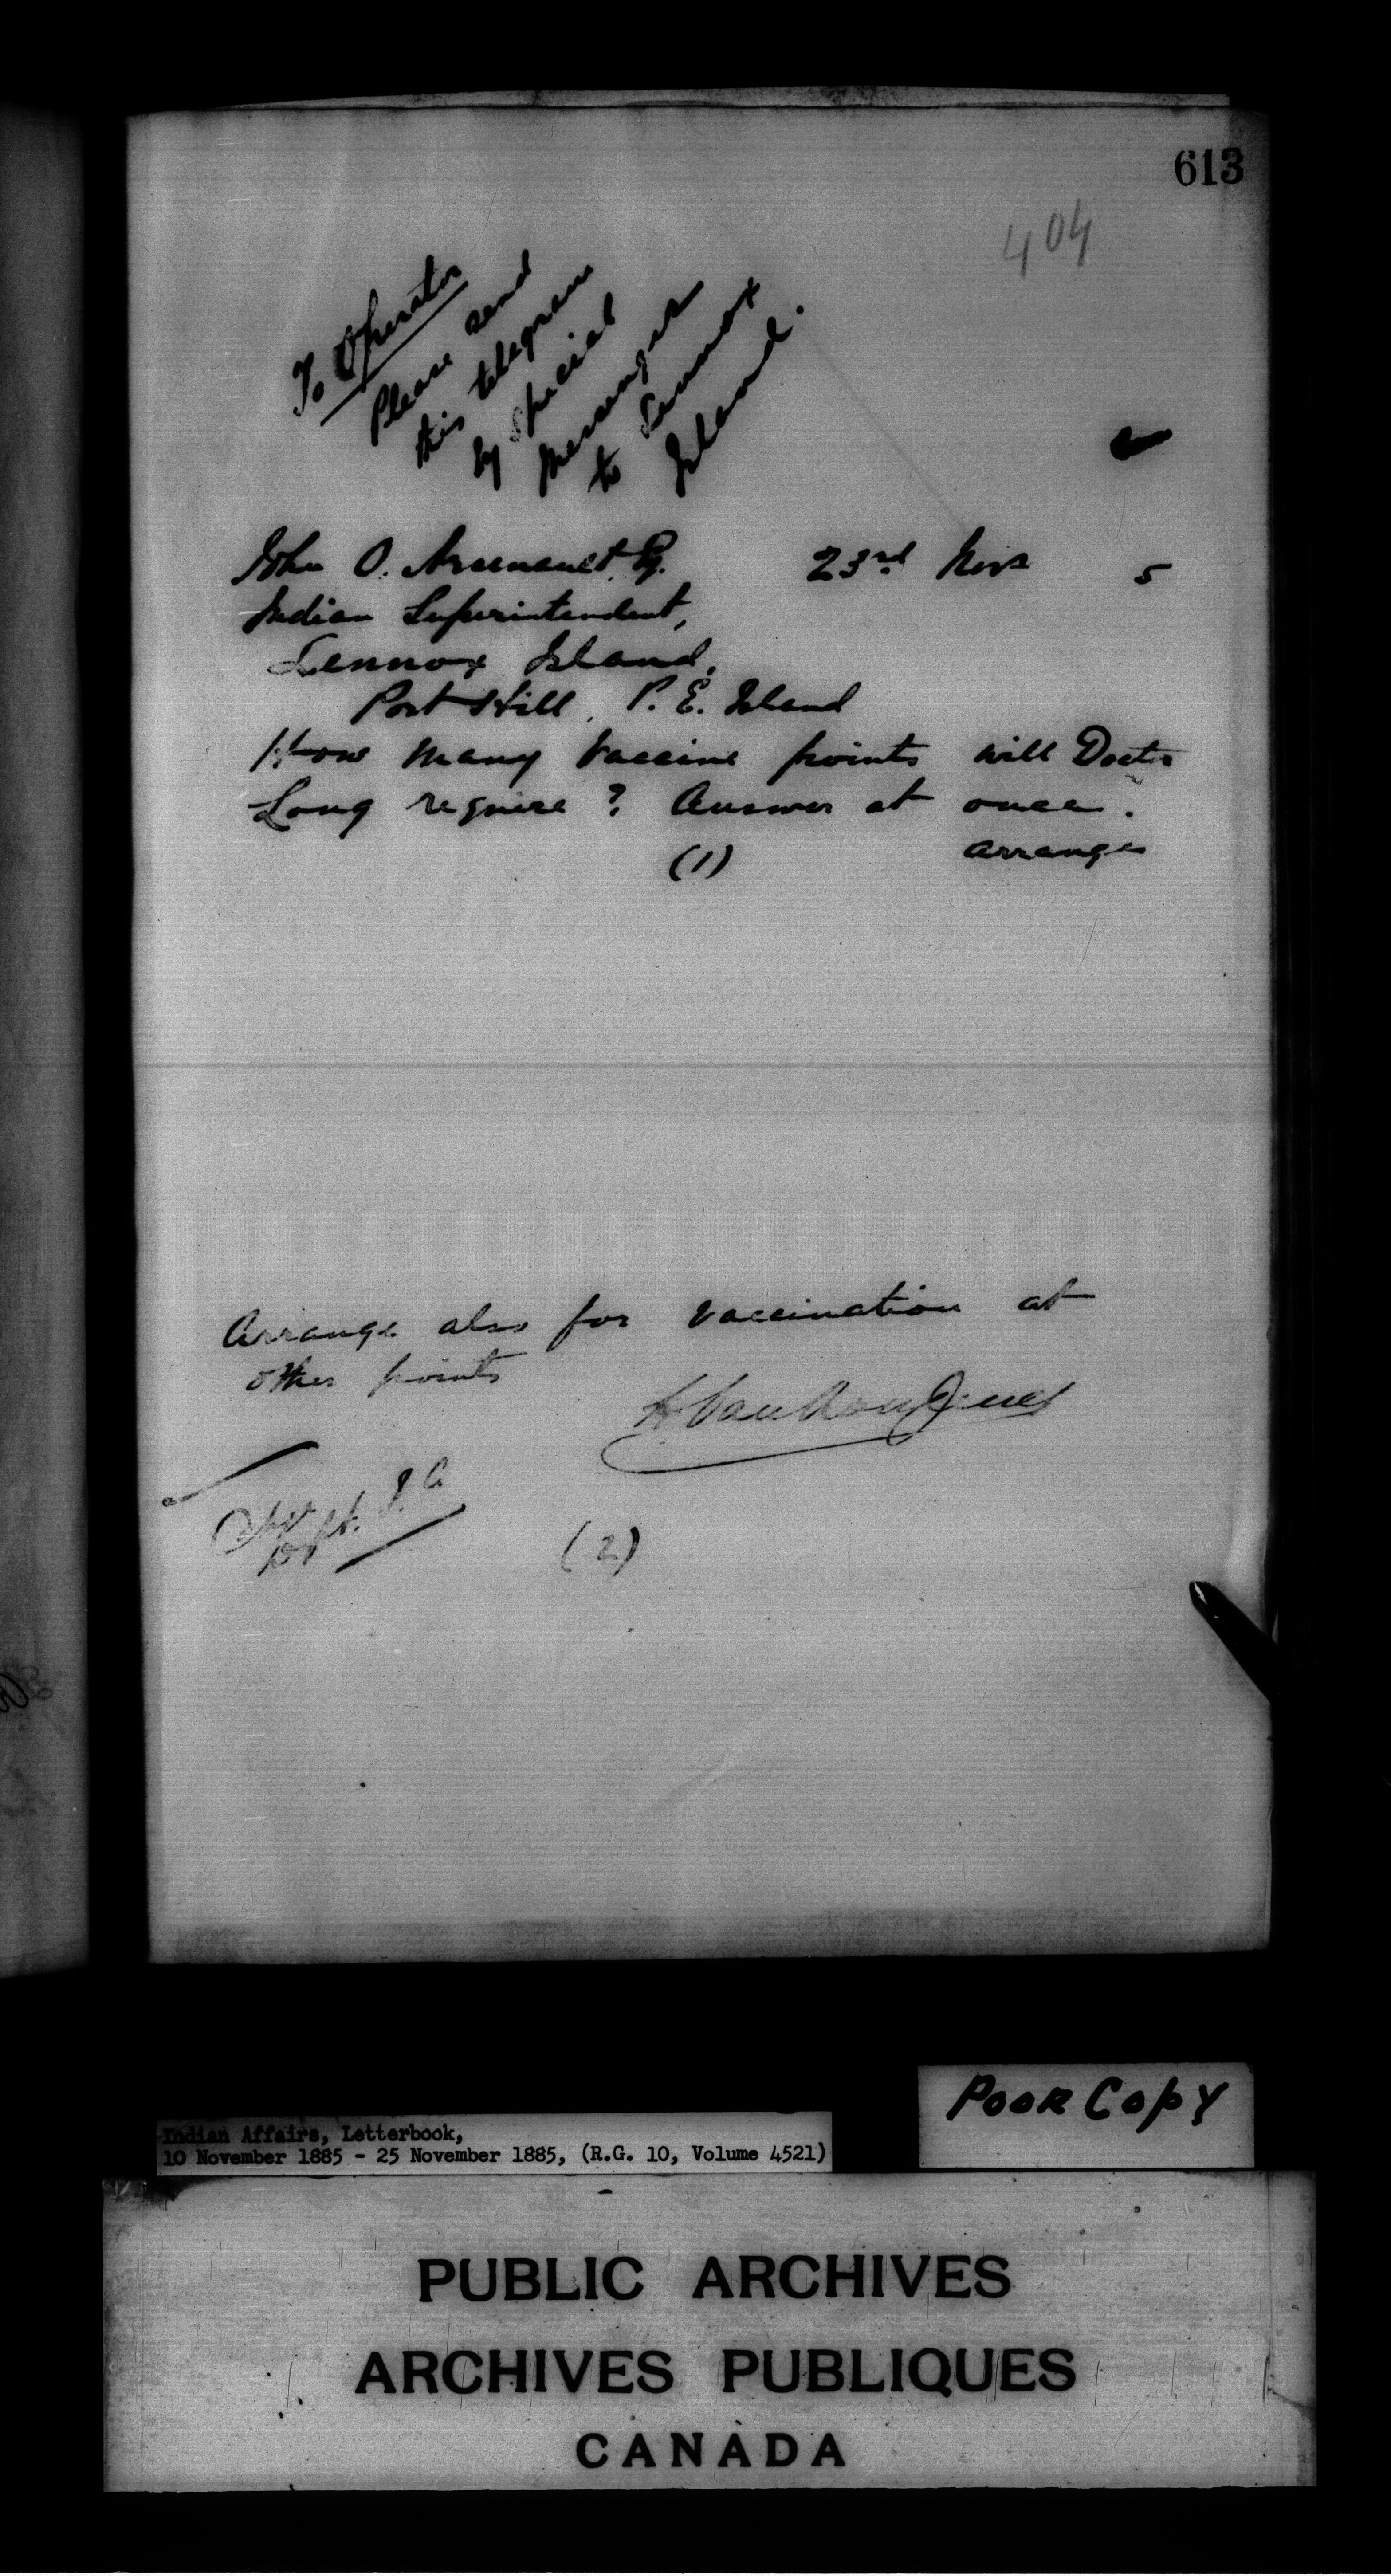 613
404
To Operator
Please send
this telegram
by special
Messenger
to Lennox
Island.
John O. Arsenault, Esq. 23rd Novr 5
Indian Superintendent,
Lennox Island,
Port Hill, P. E. Island
How many Vaccine points will Doctor
Long require ? Answer at once.
arrange
(1)
Arrange also for Vaccination at
other points
L. VanKoughnet
Dept. I. A
(2)
Poor Copy
Indian Affairs, Letterbook,
10 November 1885 - 25 November 1885, (R.G. 10, Volume 4521)
PUBLIC ARCHIVES
ARCHIVES PUBLIQUES
CANADA